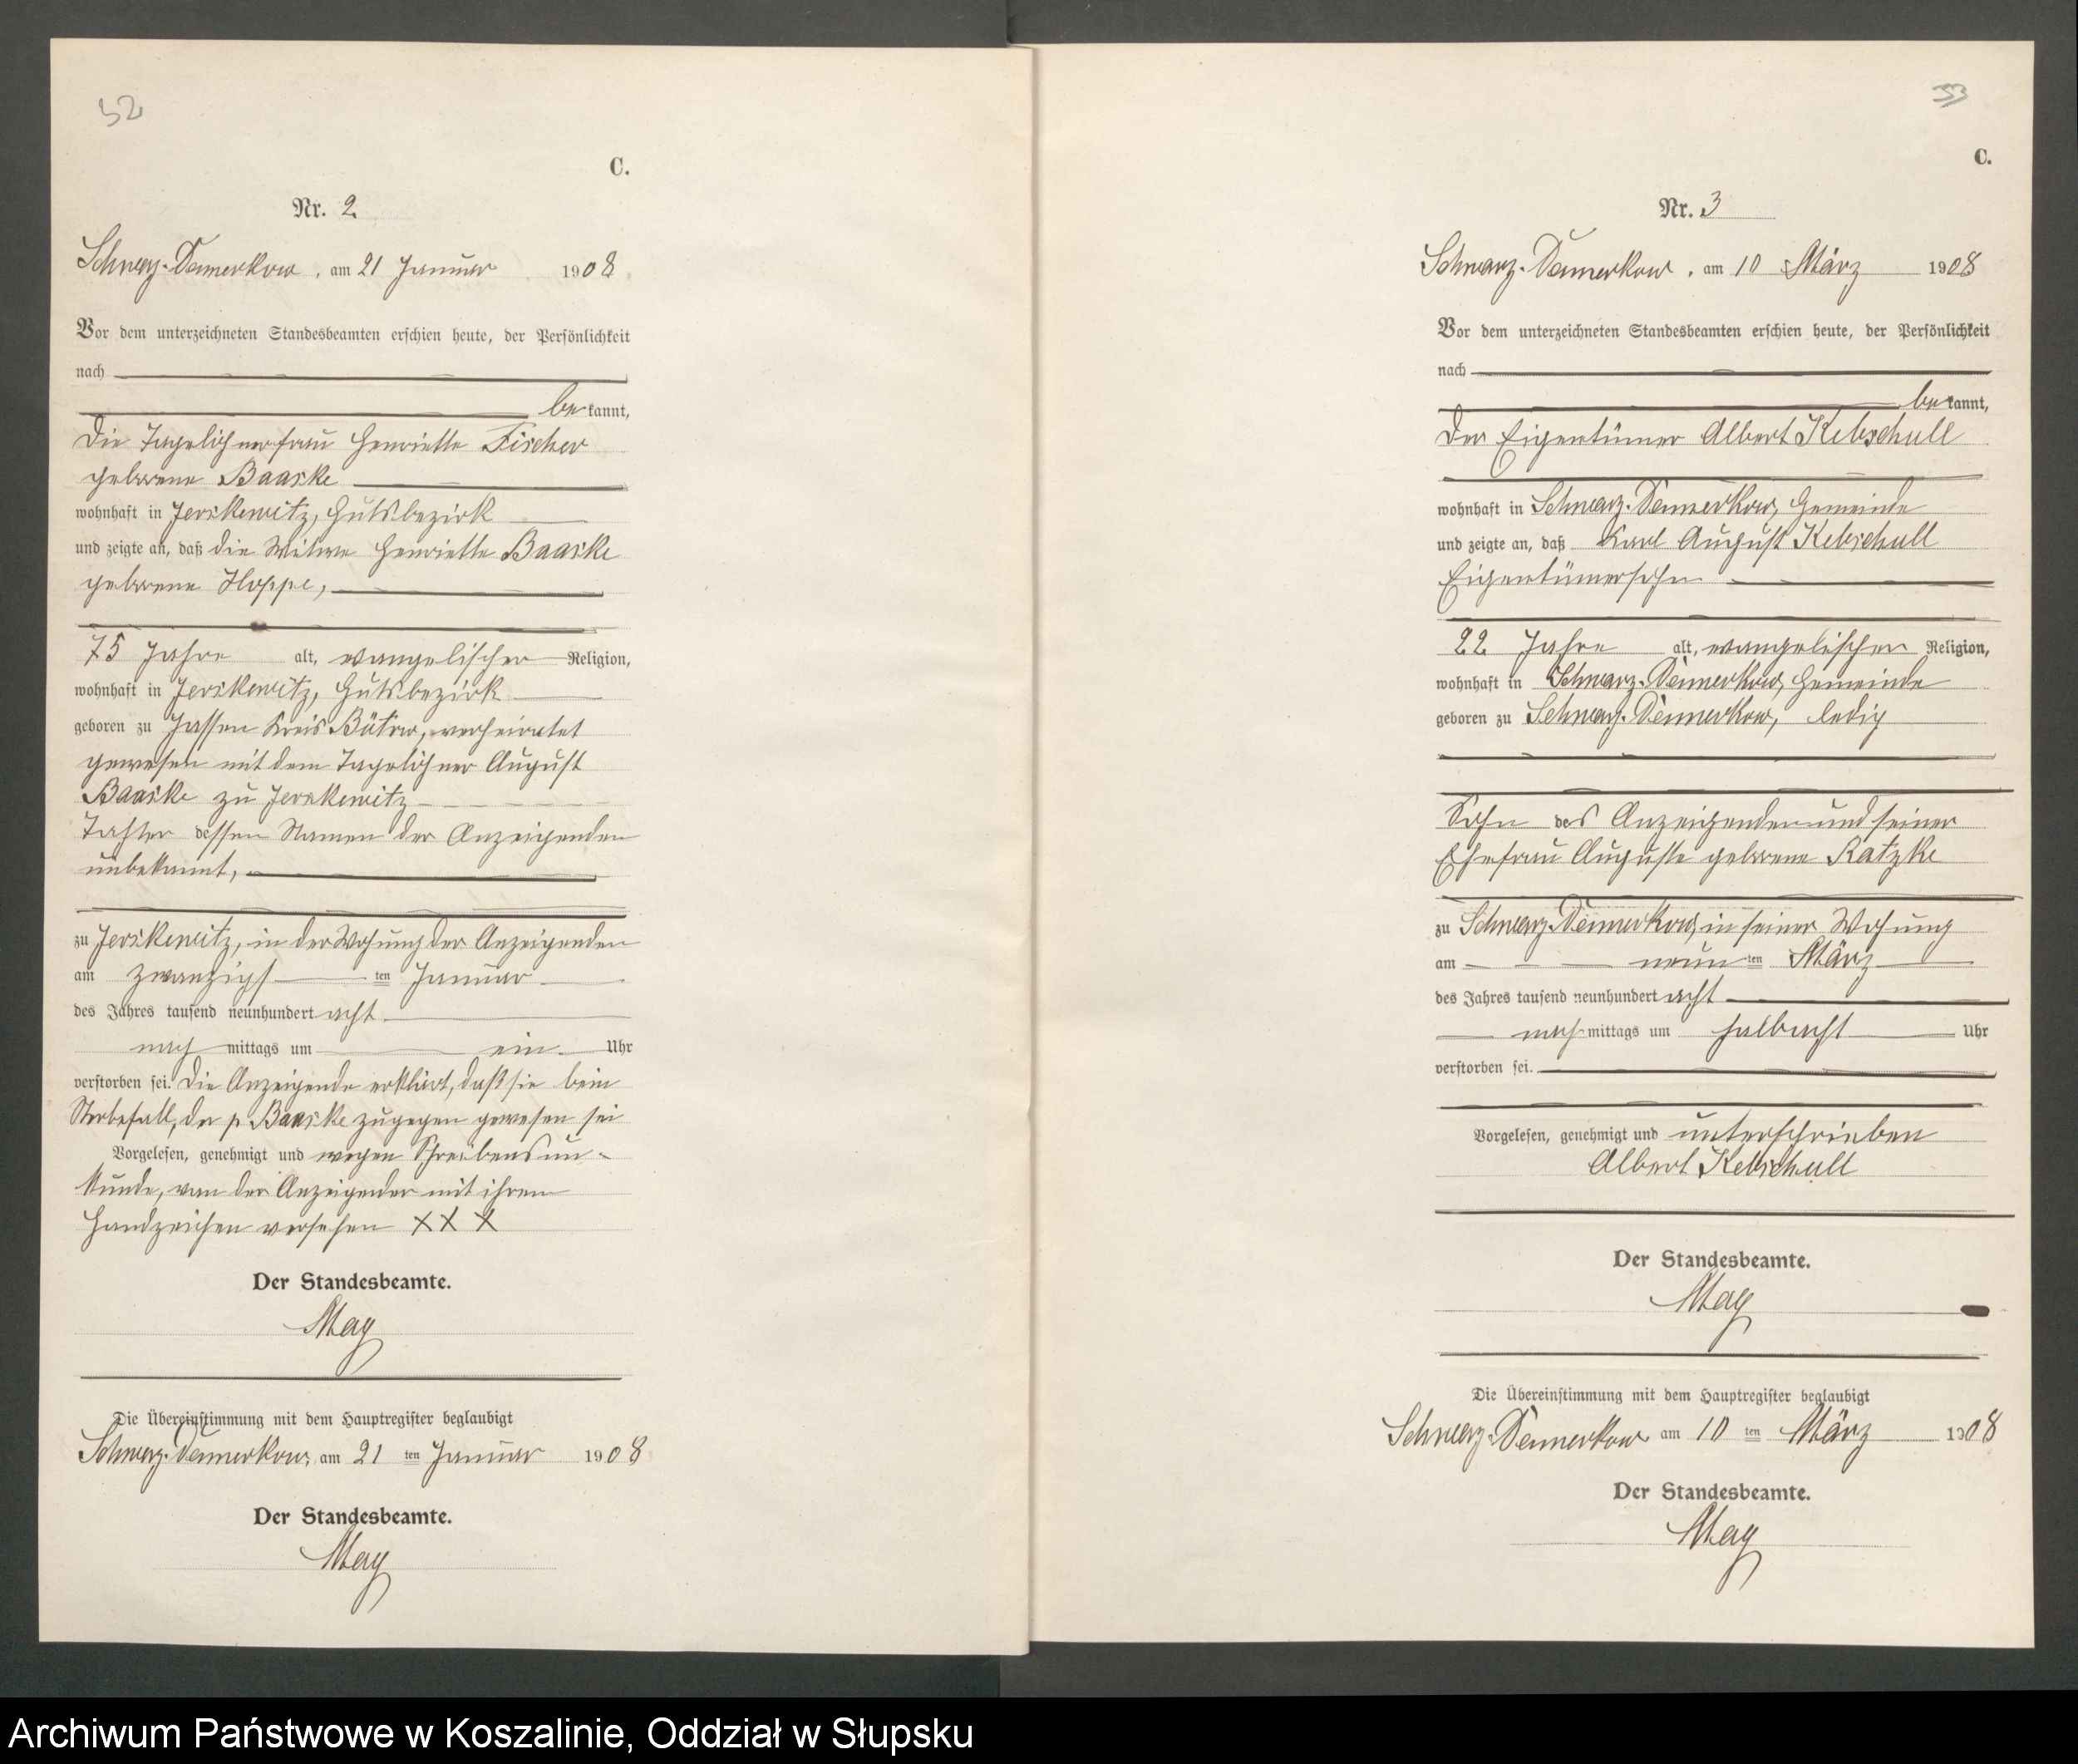 52
C.
Nr. 2
Schwarz-Damerkow, am 21 Januar 1908
Vor dem unterzeichneten Standesbeamten erschien heute, der Persönlichkeit
nach
be kannt,
die Tagelöhnerfrau Henriette Fischer
geborene Baaske
wohnhaft in Jerskewitz, Gutsbezirk
und zeigte an, daß die Witwe Henriette Baaske
geborene Hoppe,
75 Jahre alt, evangelischer Religion,
wohnhaft in Jerskewitz, Gutsbezirk
geboren zu Jassen Kreis Bütow, verheiratet
gewesen mit dem Tagelöhner August
Baaske zu Jerskewitz
Tochter dessen Namen der Anzeigenden
unbekannt,
zu Jerskewitz, in der Wohnung der Anzeigenden
am zwanzigs ten Januar
des Jahres tausend neunhundert acht
nach mittags um ein Uhr
verstorben sei. Die Anzeigende erklärt, daß sie bein
Sterbefall, der p. Baaske zugegen gewesen sei
Vorgelesen, genehmigt und wegen Schreibensun-
kunde, von der Anzeigender mit ihrem
Handzeichen versehen XXX
Der Standesbeamte.
May
Die Übereinstimmung mit dem Hauptregister beglaubigt
Schwarz-Damerkow, am 21 ten Januar 1908
Der Standesbeamte.
May
53
C.
Nr. 3
Schwarz-Damerkow, am 10 März 1908
Vor dem unterzeichneten Standesbeamten erschien heute, der Persönlichkeit
nach
be kannt,
der Eigentümer Albert Kebschull
wohnhaft in Schwarz-Damerkow, Gemeinde
und zeigte an, daß Karl August Kebschull
Eigentümersohn
22 Jahre alt, evangelischer Religion,
wohnhaft in Schwarz-Damerkow, Gemeinde
geboren zu Schwarz-Damerkow, ledig
Sohn des Anzeigenden und seiner
Ehefrau Auguste geborene Ratzke
zu Schwarz-Damerkow, in seiner Wohnung
am neun ten März
des Jahres tausend neunhundert acht
nach mittags um halbacht Uhr
verstorben sei.
Vorgelesen, genehmigt und unterschrieben
Albert Kebschull
Der Standesbeamte.
May
Die Übereinstimmung mit dem Hauptregister beglaubigt
Schwarz-Damerkow am 10 ten März 1908
Der Standesbeamte.
May
Archiwum Państwowe w Koszalinie, Oddział w Słupsku